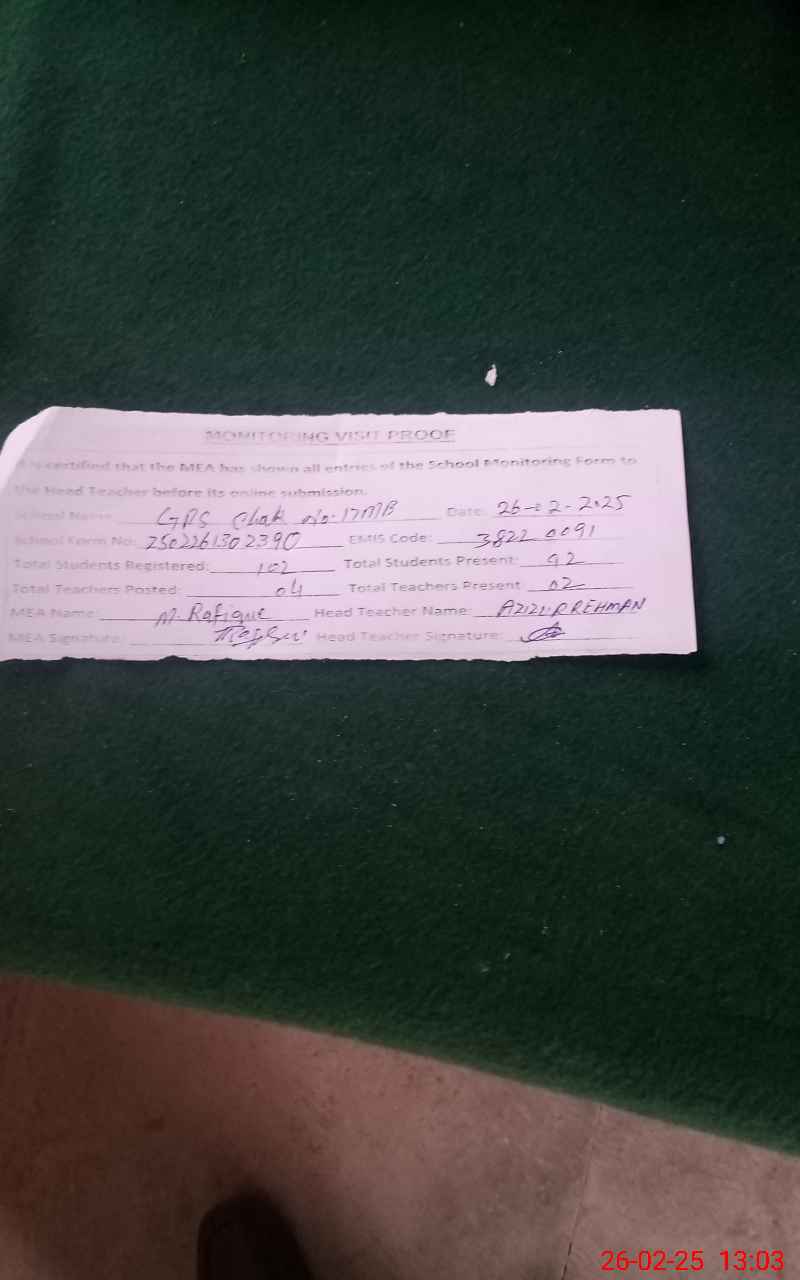 MONITORING VISIT PROOF
It is certified that the MEA has shown all entries of the School Monitoring Form to
the Head Teacher before its online submission.
School Name: GPS Chak No. 17MB Date: 26-02-2025
School Form No: 2502261302390 EMIS Code: 38220091
Total Students Registered: 102 Total Students Present: 92
Total Teachers Posted: 04 Total Teachers Present: 02
MEA Name: M. Rafique Head Teacher Name: AZIZUR REHMAN
MEA Signature: Head Teacher Signature:
26-02-25 13:03